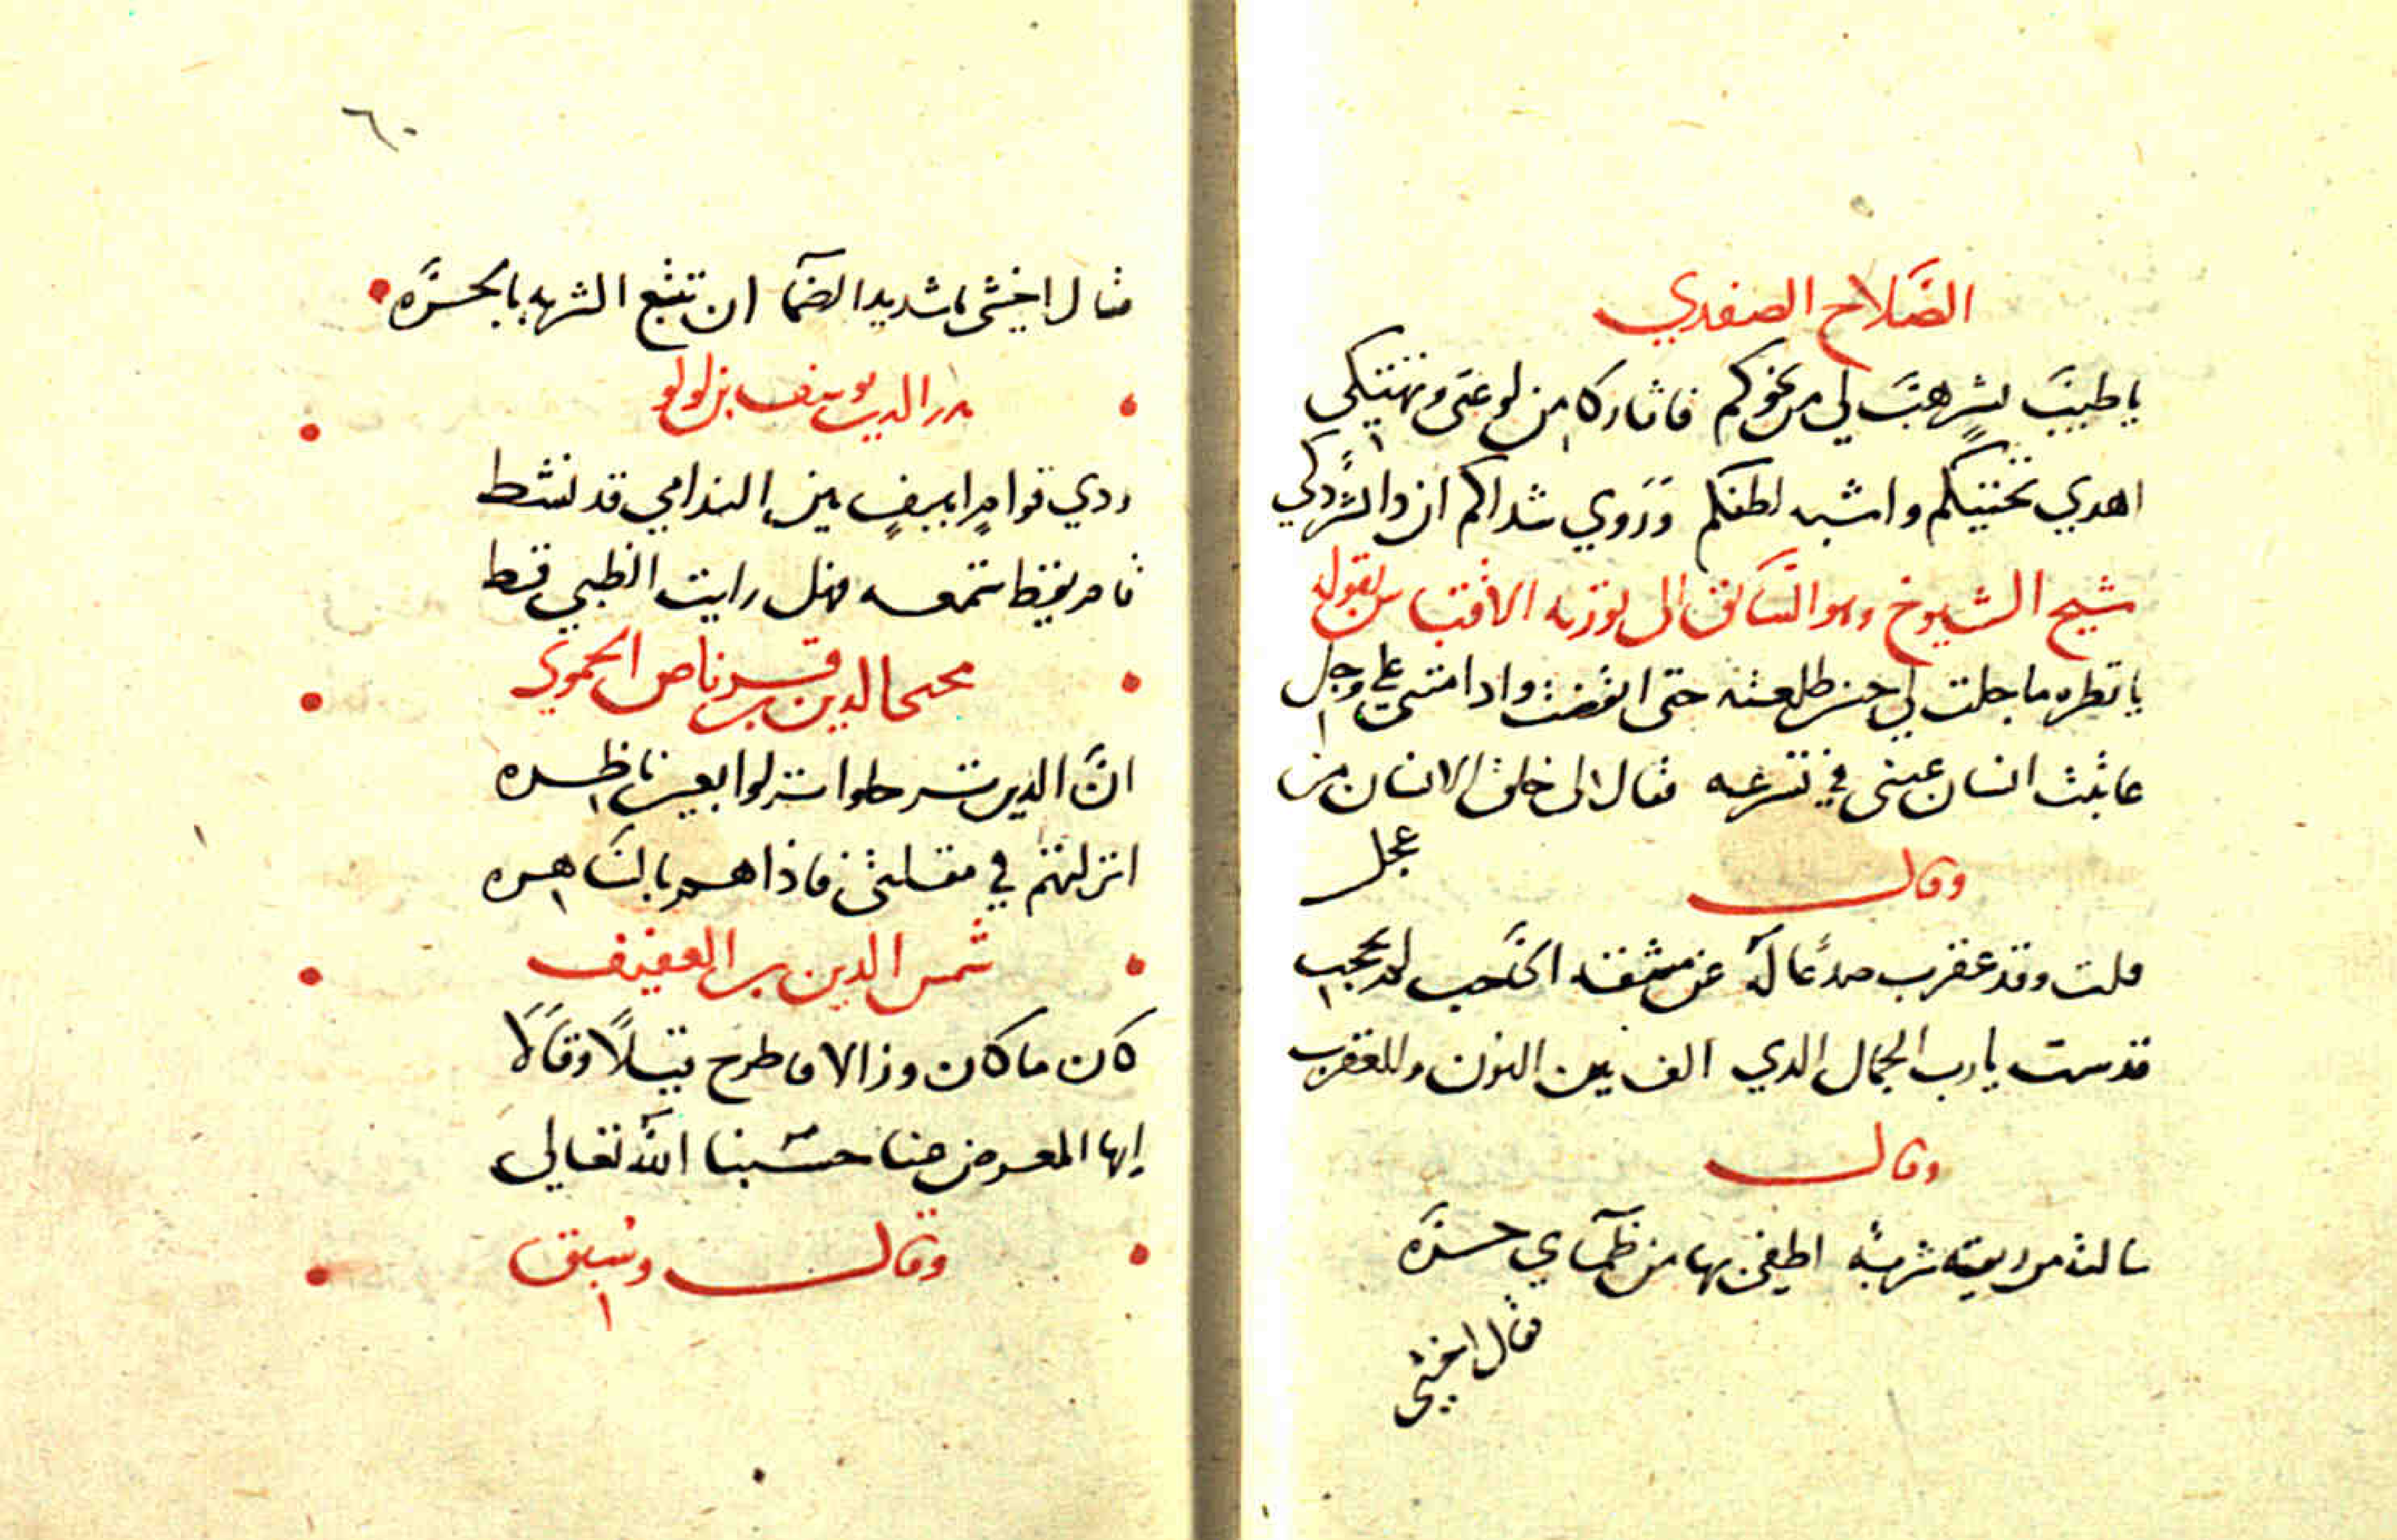 الصلاح الصفدي
يا طيب نشر هب لي من نحوكم فاثار كامن لوعتي وتهتكي
اهدي تحيتكم واشبه لطفكم وروي شذاكم ان ذا نشر ذكي
شيخ الشيوخ وهو السابق الى تورية الاقتباس بقوله
يا نظرة ما جلت لي حسن طلعته حتى انقضت وادامتني على وجل
عاتبت انسان عيني في تسرعه فقال لي خلق الانسان من
عجل
وقال
قلت وقد عقرب صدغا له عن مشقه الحاجب لم يحجب
قدست يا رب الجمال الذي الف بين النون والعقرب
وقال
سالته من ريقه شربة اطفي بها من ظماي حره
فقال اخشى
٦٠
فقال اخشى يا شديد الضما ان تتبع الشربه بالجره
بدر الدين يوسف بن لولو
ردي قوام اهيف بين الندامي قد نشط
فامر يقط شمعه فهل رايت الظبي قط
محيي الدين بن قرناص الحموي
ان الذين ترحلوا نزلوا بعين ناظره
انزلتهم في مقلتي فاذا هم بالساهره
شمس الدين بن العفيف
كان ما كان وزالا فاطرح قيلا وقالا
ايها المعرض عنا حسبنا الله تعالى
وقال وسبق